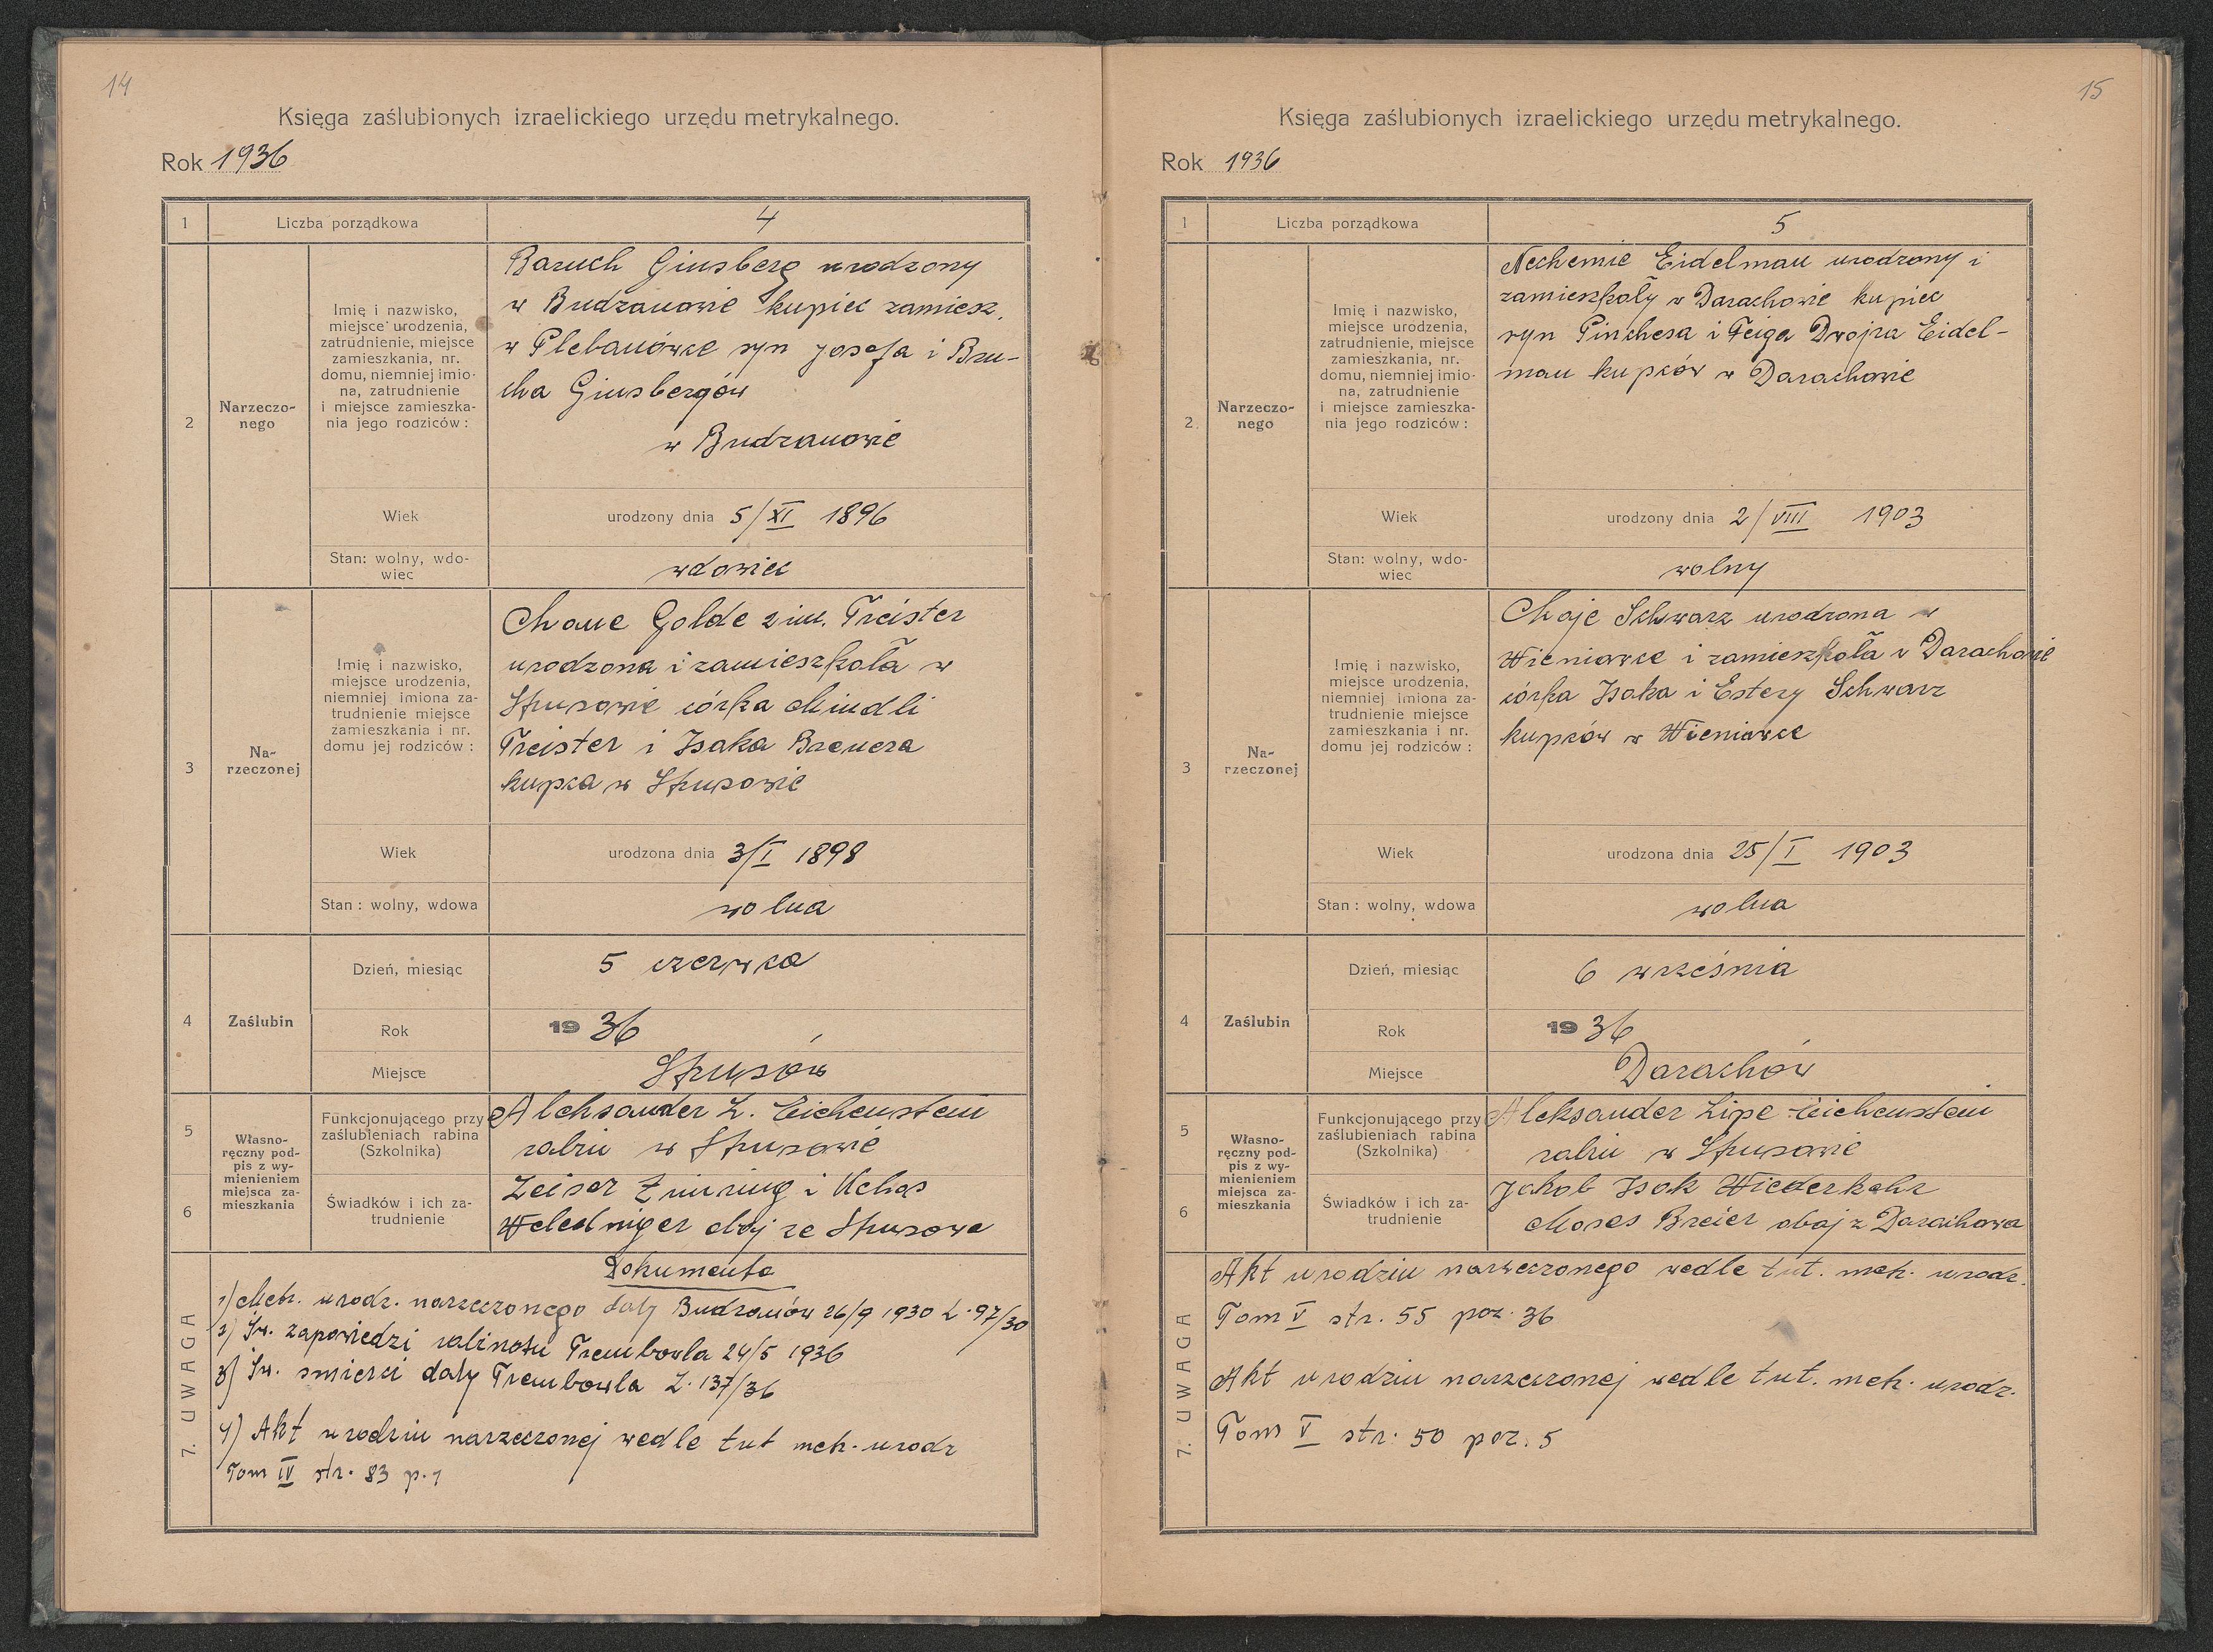 14
Księga zaślubionych izraelickiego urzędu metrykalnego.
Rok 1936
1
Liczba porządkowa
4
2
Narzeczo-
nego
Imię i nazwisko,
miejsce urodzenia,
zatrudnienie, miejsce
zamieszkania, nr.
domu, niemniej imio-
na, zatrudnienie
i miejsce zamieszka-
nia jego rodziców:
Baruch Ginsberg urodzony
w Budzanowie kupiec zamiesz.
w Plebanówce syn Josefa i Bru-
cha Ginsbergów
w Budzanowie
Wiek
urodzony dnia 5/XI 1896
Stan: wolny, wdo-
wiec
wdowiec
3
Na-
rzeczonej
Imię i nazwisko,
miejsce urodzenia,
niemniej imiona za-
trudnienie miejsce
zamieszkania i nr.
domu jej rodziców:
Chane Golde 2 im. Treister
urodzona i zamieszkała w
Strusowie córka Mindli
Treister i Isaka Brenera
kupca w Strusowie
Wiek
urodzona dnia 3/I 1898
Stan: wolny, wdowa
wolna
4
Zaślubin
Dzień, miesiąc
5 czerwca
Rok
1936
Miejsce
Strusów
5
6
Własno-
ręczny pod-
pis z wy-
mienieniem
miejsca za-
mieszkania
Funkcjonującego przy
zaślubieniach rabina
(Szkolnika)
Aleksander L. Eichenstein
rabin w Strusowie
Świadków i ich za-
trudnienie
Leisor i
obaj ze Strusowa
7. UWAGA
Dokumenta
1) Metr. urodz. narzeczonego daty Budzanów 26/9 1930 L. 97/30
2) Św. zapowiedzi rabinatu Trembowla 24/5 1936
3) Św. smierci daty Trembowla L. 137/36
4) Akt urodzin narzeczonej wedle tut metr. urodz
Tom IV str. 83 p. 1
15
Księga zaślubionych izraelickiego urzędu metrykalnego.
Rok 1936
1
Liczba porządkowa
5
2.
Narzeczo-
nego
Imię i nazwisko,
miejsce urodzenia,
zatrudnienie, miejsce
zamieszkania, nr.
domu, niemniej imio-
na, zatrudnienie
i miejsce zamieszka-
nia jego rodziców:
Nechemie Eidelman urodzony i
zamieszkały w Darachowie kupiec
syn Pinchesa i Feiga Dwojra Eidel-
man kupców w Darachowie
Wiek
urodzony dnia 2/VIII 1903
Stan: wolny, wdo-
wiec
wolny
3
Na-
rzeczonej
Imię i nazwisko,
miejsce urodzenia,
niemniej imiona za-
trudnienie miejsce
zamieszkania i nr.
domu jej rodziców:
Chaje Schwarz urodzona w
Wieniawce i zamieszkała w Darachowie
córka Isaka i Estery Schwarz
kupców w Wieniawce
Wiek
urodzona dnia 25/I 1903
Stan: wolny, wdowa
wolna
4
Zaślubin
Dzień, miesiąc
6 września
Rok
1936
Miejsce
Darachów
5
6
Własno-
ręczny pod-
pis z wy-
mienieniem
miejsca za-
mieszkania
Funkcjonującego przy
zaślubieniach rabina
(Szkolnika)
Aleksander Lipe Eichenstein
rabin w Strusowie
Świadków i ich za-
trudnienie
Jakob Isak Wiederkehr
Moses Breier obaj z Darachowa
7. UWAGA
Akt urodzin narzeczonego wedle tut. metr. urodz.
Tom V str. 55 poz. 36
Akt urodzin narzeczonej wedle tut. metr. urodz.
Tom V str. 50 poz. 5